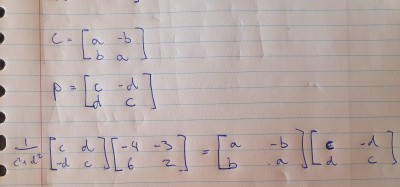 C = [a -b
b a]
P = [c -d
d c]
1/(c²+d²) [c d; -d c] [-4 -3; 6 2] = [a -b; b a] [c -d; d c]